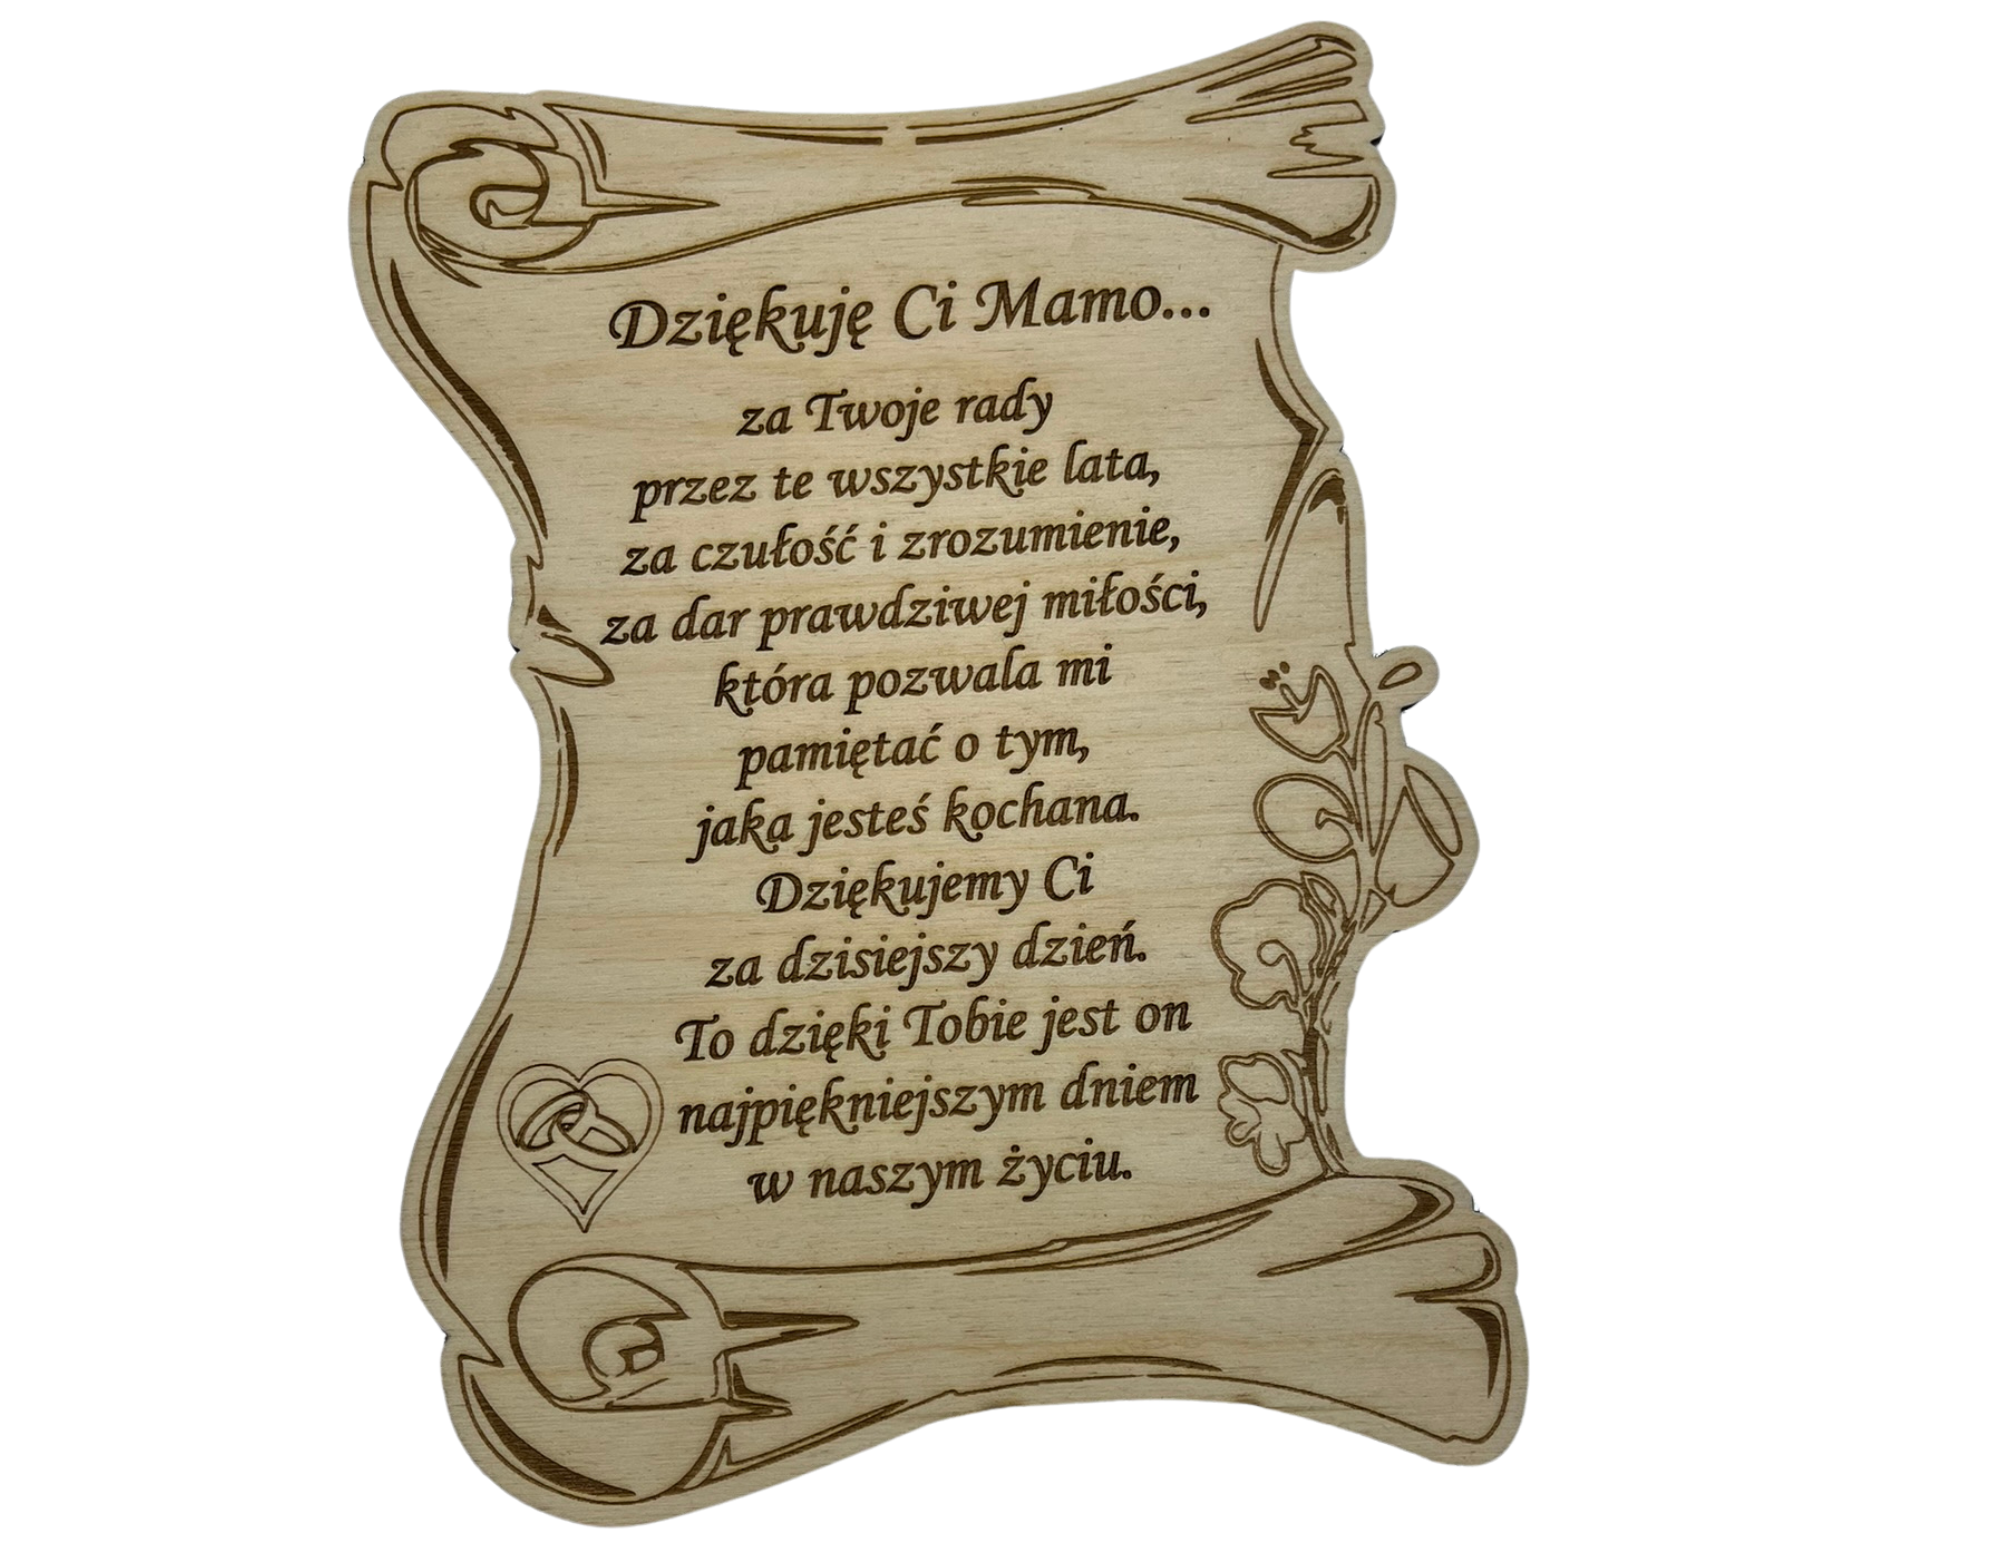 Dziękuję Ci Mamo...
za Twoje rady
przez te wszystkie lata,
za czułość i zrozumienie,
za dar prawdziwej miłości,
która pozwala mi
pamiętać o tym,
jaka jesteś kochana.
Dziękujemy Ci
za dzisiejszy dzień.
To dzięki Tobie jest on
najpiękniejszym dniem
w naszym życiu.